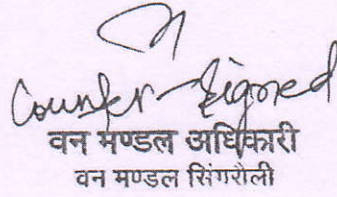 Counter-Signed
वन मण्डल अधिकारी
वन मण्डल सिंगरौली